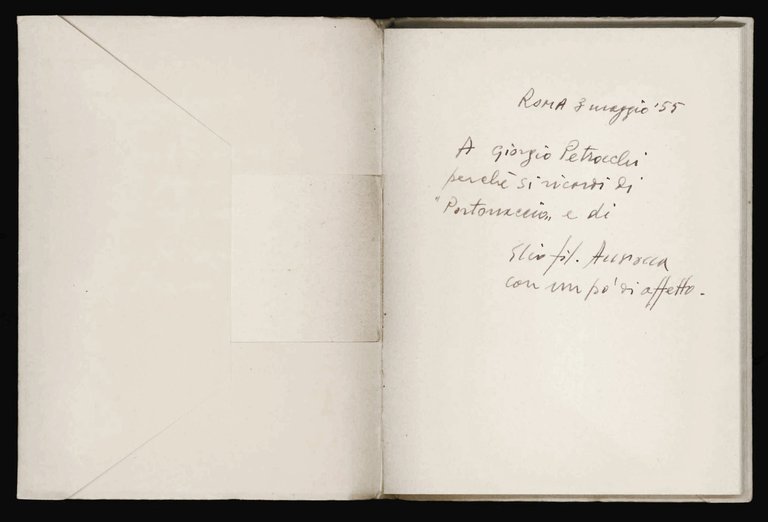 ROMA 3 maggio '55
A Giorgio Petrocchi
perché si ricordi di
"Portonaccio„ e di
Elio fil. Accrocca
con un po' di affetto.